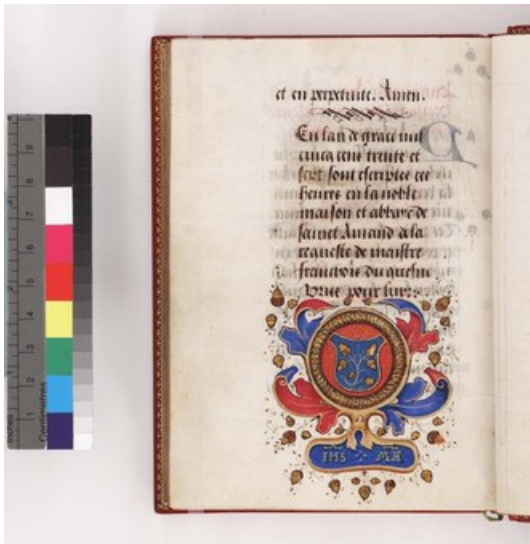 et en perpetuite. Amen.
En lan de grace mil
cincq cent trente et
sept sont escriptes ces
heures en la noble
maison et abbaye de
sainct Amand a la
requeste de maistre
franchois du quesne
pour
IHS MA
9
8
7
6
5
4
3
2
1
inches
Centimetres